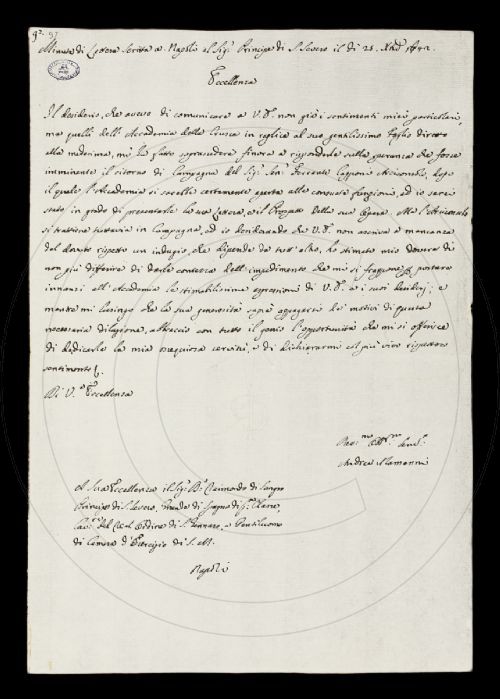 Minuta di Lettera scritta a Napoli al Sig.r Principe di S. Severo il dì 25.
Eccellenza
Il desiderio, che avevo di comunicare a V. E. non già i sentimenti miei particolari,
ma quelli dell'Accademia della Crusca in replica al suo gentilissimo foglio diretto
alla medesima, mi ha fatto soprasedere finora a risponderle sulla speranza che fosse
imminente il ritorno di Campagna del Sig.r Sen.r Ferrante Capponi Arciconsolo, dopo
il quale l'Accademia si sarebbe certamente aperta alle consuete funzioni, ed io sarei
stato in grado di presentarle la sua Lettera, e il Prospetto della sua Opera. Ma l'Arciconsolo
si trattiene tuttavia in Campagna, ed io dubitando che V. E. non ascriva a mancanza
del dovuto rispetto un indugio, che dipende da tutt'altro, ho stimato mio dovere di
non più differire di darle contezza dell'impedimento che mi si frappone per portare
innanzi all'Accademia le stimabilissime espressioni di V. E. e i suoi desiderj; e
mentre mi lusingo che la sua generosità saprà appagarsi de' motivi di questa
necessaria dilazione, abbraccio con tutto il genio l'opportunità che mi si offerisce
di dedicarle la mia ossequiosa servitù, e di dichiararmi col più vivo rispettoso
sentimento
Di V.a Eccellenza
Andrea Alamanni
A Sua Eccellenza il Sig.r D. Raimondo di Sangro
Principe di S. Severo, Grande di Spagna di p.a Classe,
Cav.re del Real Ordine di S. Gennaro, e Gentiluomo
di Camera d'Esercizio di S. M.
Napoli